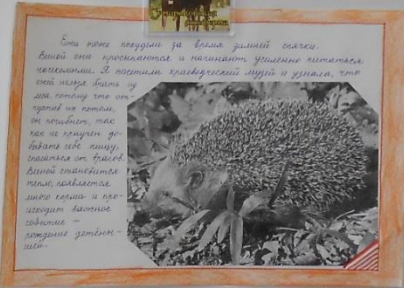 Ежи тоже похудели за время зимней спячки.
Весной они просыпаются и начинают усиленно питаться
насекомыми. Я посетила краеведческий музей и узнала, что
ежей нельзя брать до-
мой, потому что от-
пустив их потом,
он погибнет, так
как не приучен до-
бывать себе пищу,
спасаться от врагов.
Весной становится
тепло, появляется
много корма и про-
исходит важное
событие –
рождение детены-
шей.